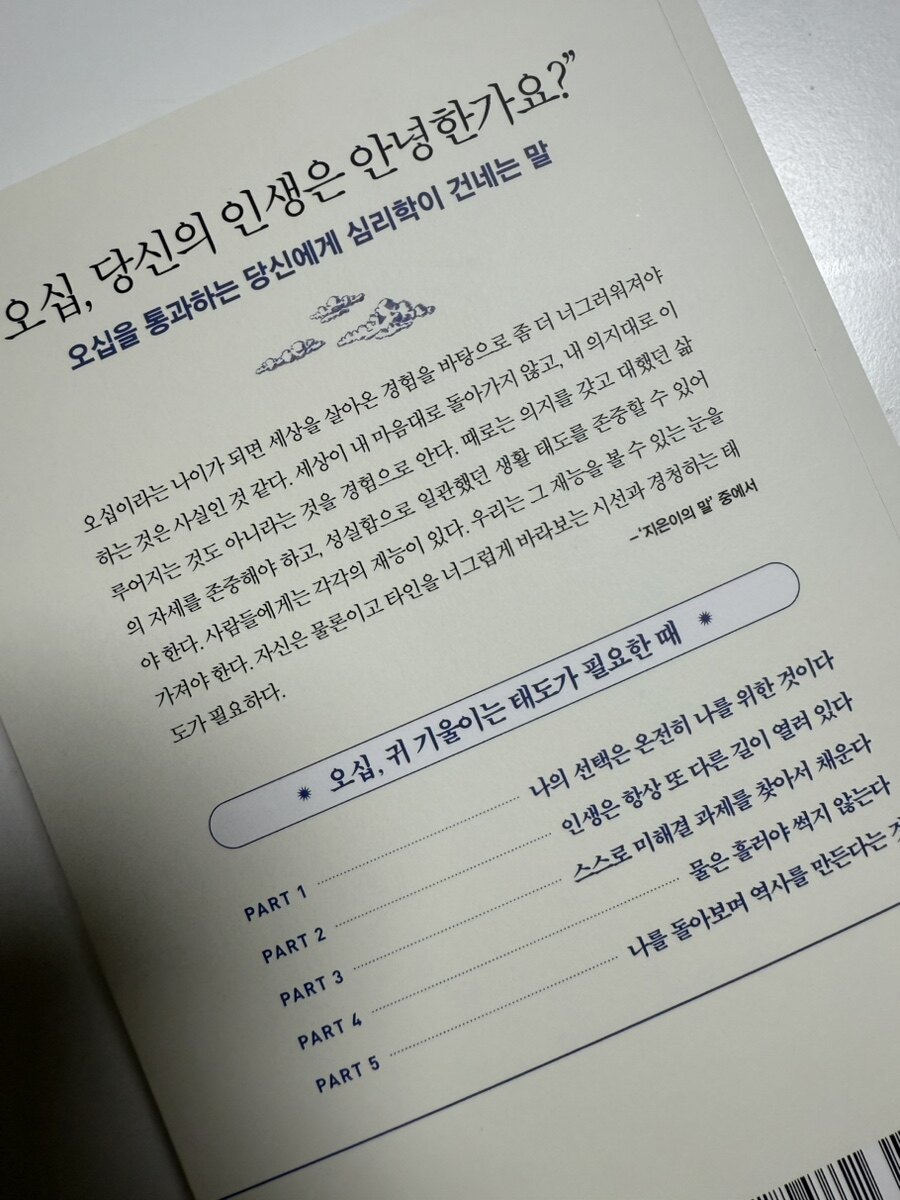 오십, 당신의 인생은 안녕한가요?”
오십을 통과하는 당신에게 심리학이 건네는 말
오십이라는 나이가 되면 세상을 살아온 경험을 바탕으로 좀 더 너그러워져야
하는 것은 사실인 것 같다. 세상이 내 마음대로 돌아가지 않고, 내 의지대로 이
루어지는 것도 아니라는 것을 경험으로 안다. 때로는 의지를 갖고 대했던 삶
의 자세를 존중해야 하고, 성실함으로 일관했던 생활 태도를 존중할 수 있어
야 한다. 사람들에게는 각각의 재능이 있다. 우리는 그 재능을 볼 수 있는 눈을
가져야 한다. 자신은 물론이고 타인을 너그럽게 바라보는 시선과 경청하는 태
도가 필요하다.
–‘지은이의 말’ 중에서
오십, 귀 기울이는 태도가 필요한 때
PART 1 나의 선택은 온전히 나를 위한 것이다
PART 2 인생은 항상 또 다른 길이 열려 있다
PART 3 스스로 미해결 과제를 찾아서 채운다
PART 4 물은 흘러야 썩지 않는다
PART 5 나를 돌아보며 역사를 만든다는